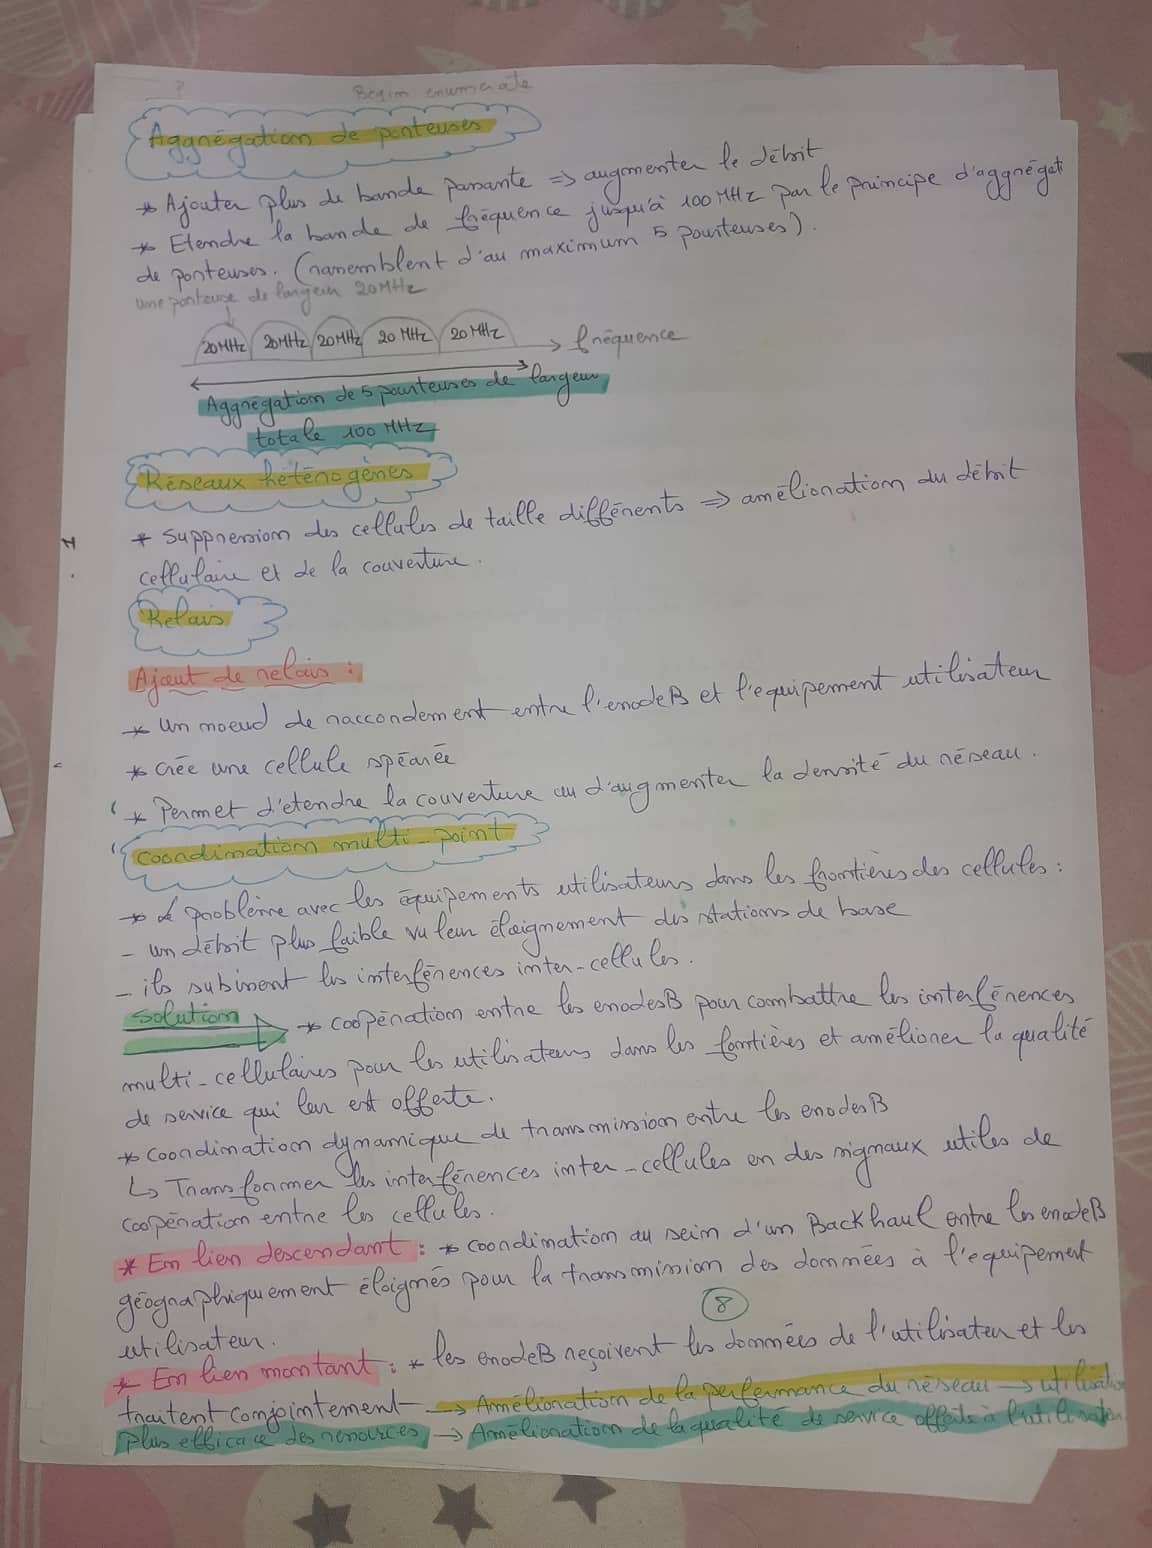 ?
Begin enumerate
Aggrégation de porteuses
* Ajouter plus de bande passante => augmenter le débit
* Etendre la bande de fréquence jusqu'à 100 MHz par le principe d'aggrégat
de porteuses. (rassemblent d'au maximum 5 pourteuses).
une porteuse de largeur 20MHz
20MHz 20MHz 20MHz 20 MHz 20 MHz → fréquence
Aggrégation de 5 pourteuses de largeur
totale 100 MHz
Réseaux hétérogènes
* Suppression des cellules de taille différents => amélioration du débit
cellulaire et de la couverture.
Relais
Ajout de relais :
* Un noeud de raccondement entre l'enodeB et l'equipement utilisateur
* Crée une cellule spéarée
* Permet d'étendre la couverture ou d'augmenter la densité du réseau.
Coordination multi-point
* Le problème avec les équipements utilisateurs dans les frontières des cellules :
- un débit plus faible vu leur éloignement des stations de base
- ils subissent les interférences inter-cellules.
Solution * coopération entre les enodesB pour combattre les interférences
multi-cellulaires pour les utilisateurs dans les forntières et améliorer la qualité
de service qui leur est offerte.
* coordination dynamique de transmission entre les enodesB
↳ Transformer les interférences inter-cellules en des signaux utiles de
coopération entre les cellules.
* En lien descendant : * coordination au sein d'un Backhaul entre les enodeB
géographiquement éloignés pour la transmission des données à l'equipement
utilisateur.
8
* En lien montant : * les enodeB reçoivent les données de l'utilisateur et les
traitent conjointement → Amélioration de la performance du réseau → utilisation
plus efficace des ressources → Amélioration de la qualité de service offerte à l'utilisateur